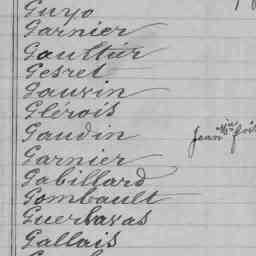 Guyo
Garnier
Gaultier
Gesret
Gauvin
Glérois
Gaudin
Jean
Garnier
Gabillard
Gombault
Guerlavas
Gallais